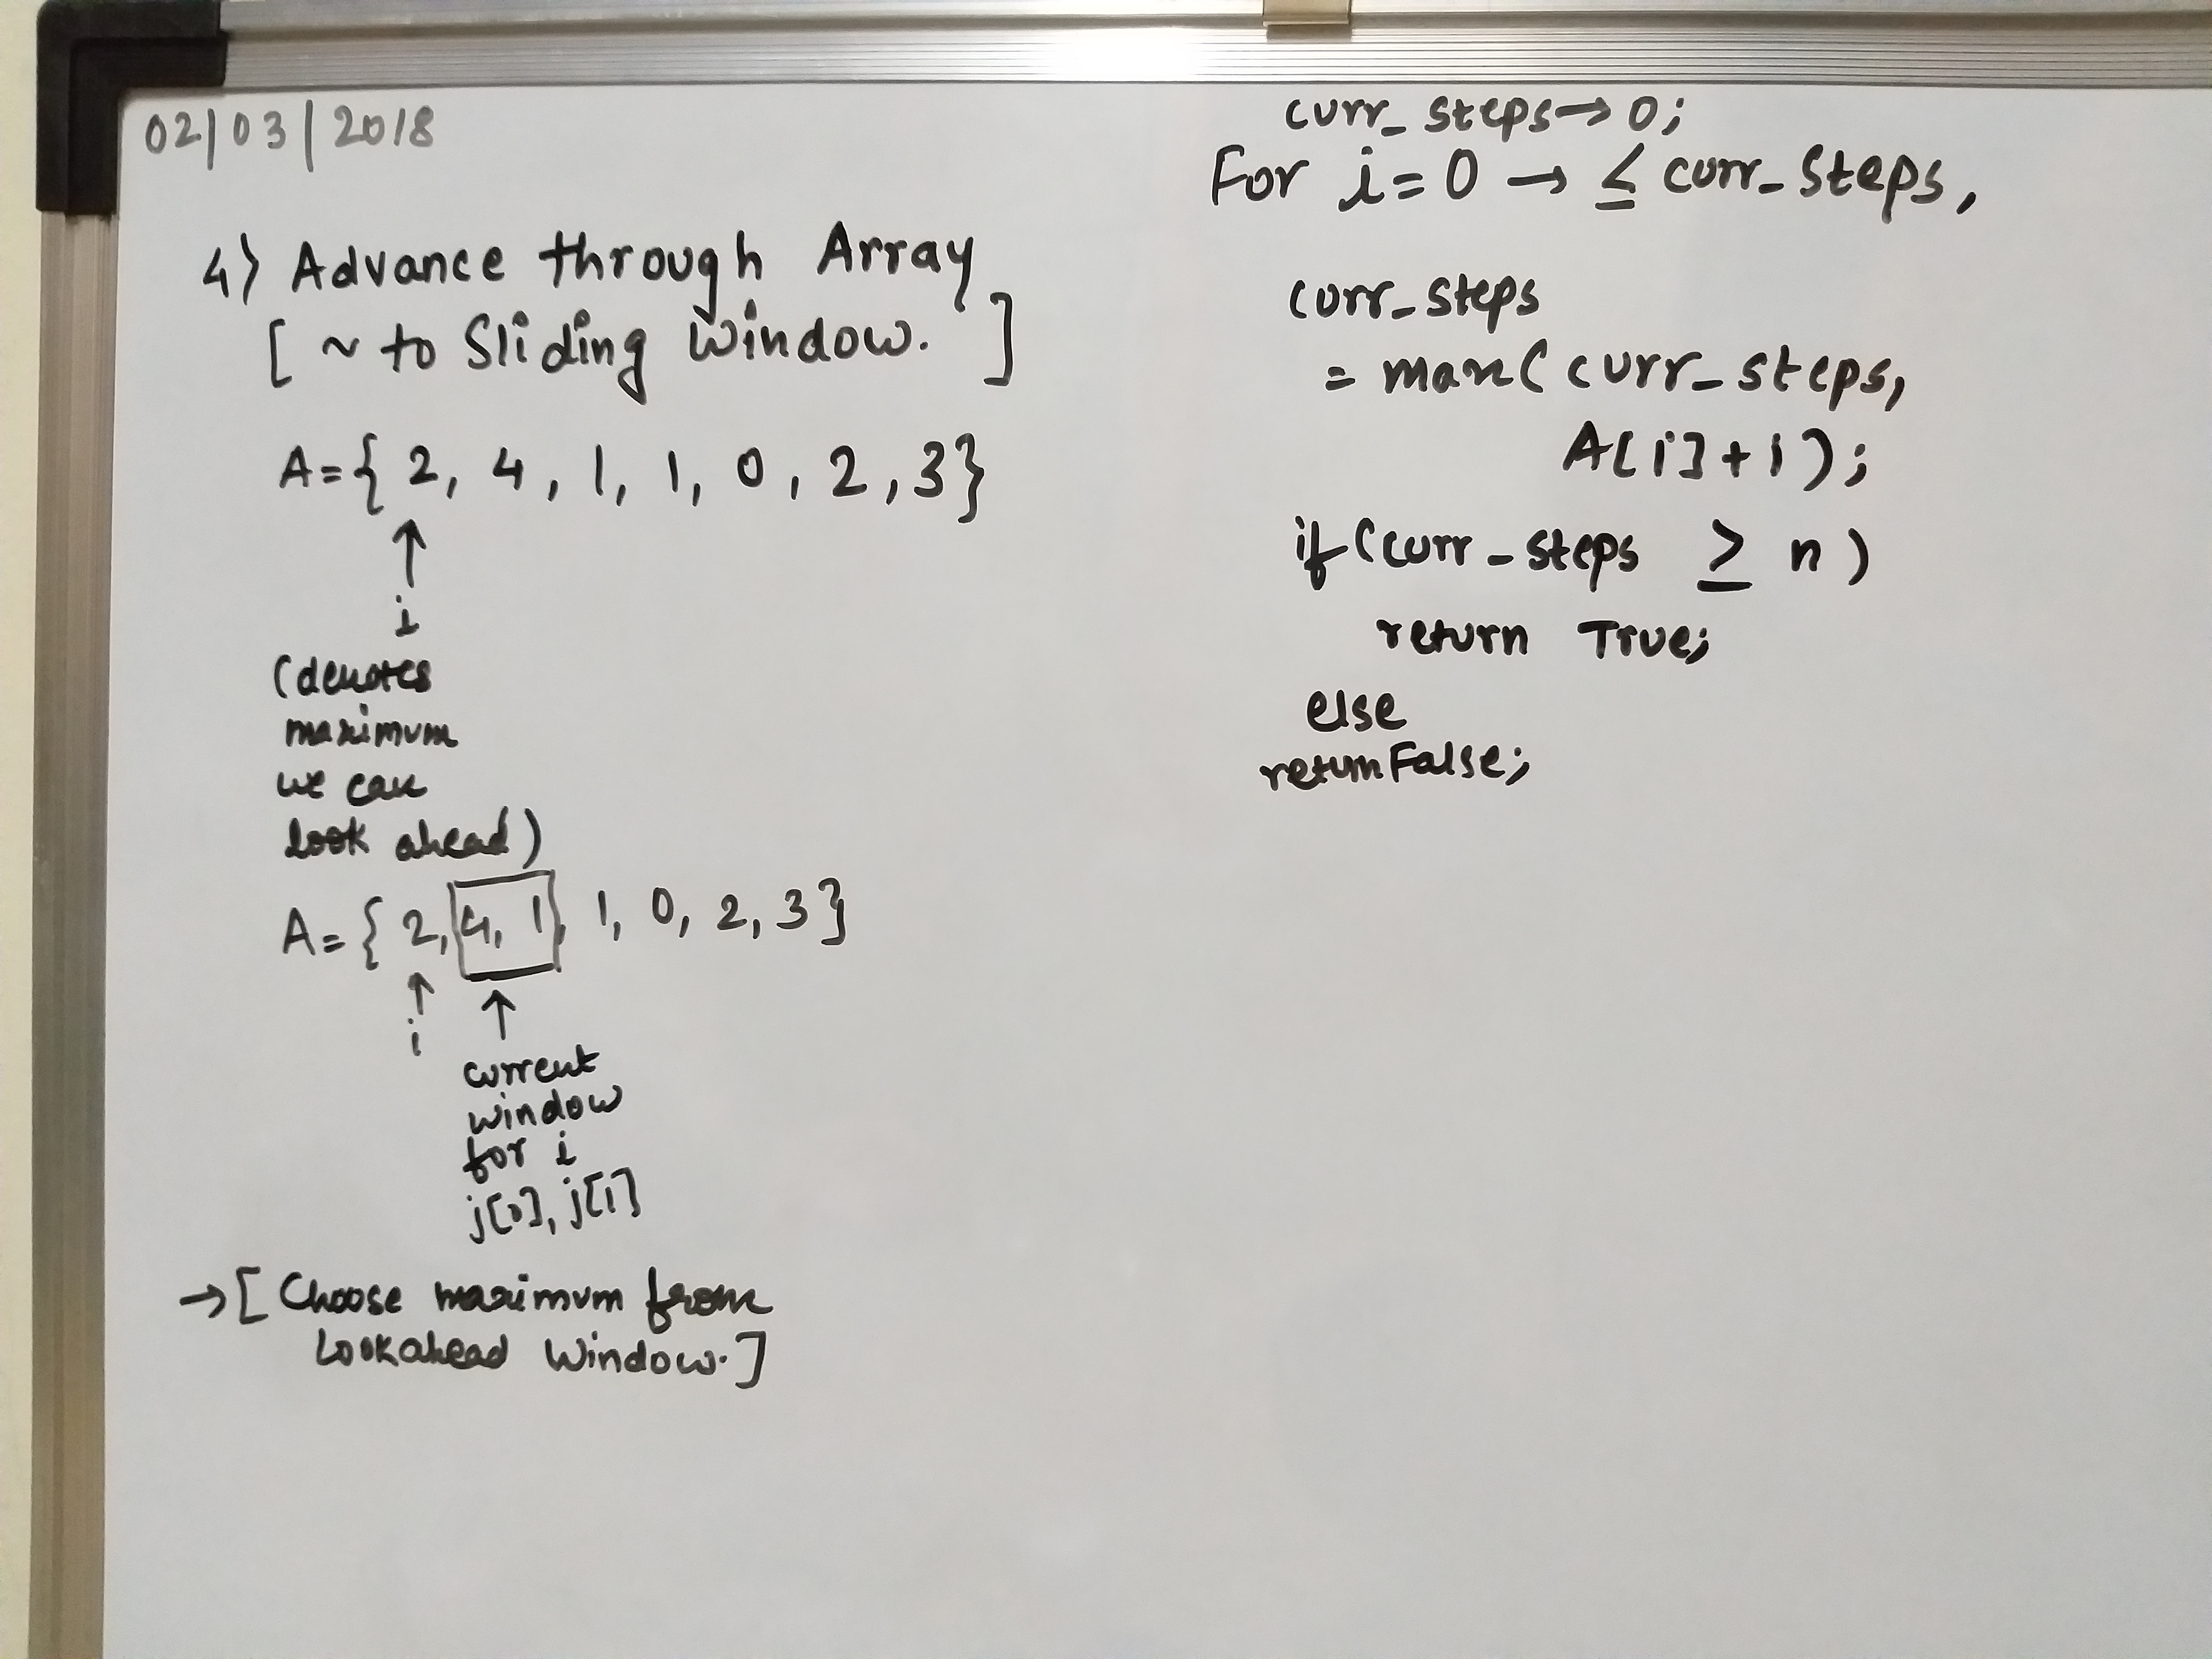 02/03/2018
4) Advance through Array
[ ~ to Sliding Window. ]
A={ 2, 4, 1, 1, 0, 2, 3}
↑
i
(denotes
maximum
we can
look ahead)
A={ 2, 4, 1, 1, 0, 2, 3}
↑ ↑
i
current
window
for i
j[0], j[1]
→[ Choose maximum from
Lookahead Window.]
curr_steps→0;
For i=0 → ≤ curr_steps,
curr_steps
= max(curr_steps,
A[i]+i);
if(curr_steps ≥ n)
return True;
else
return False;